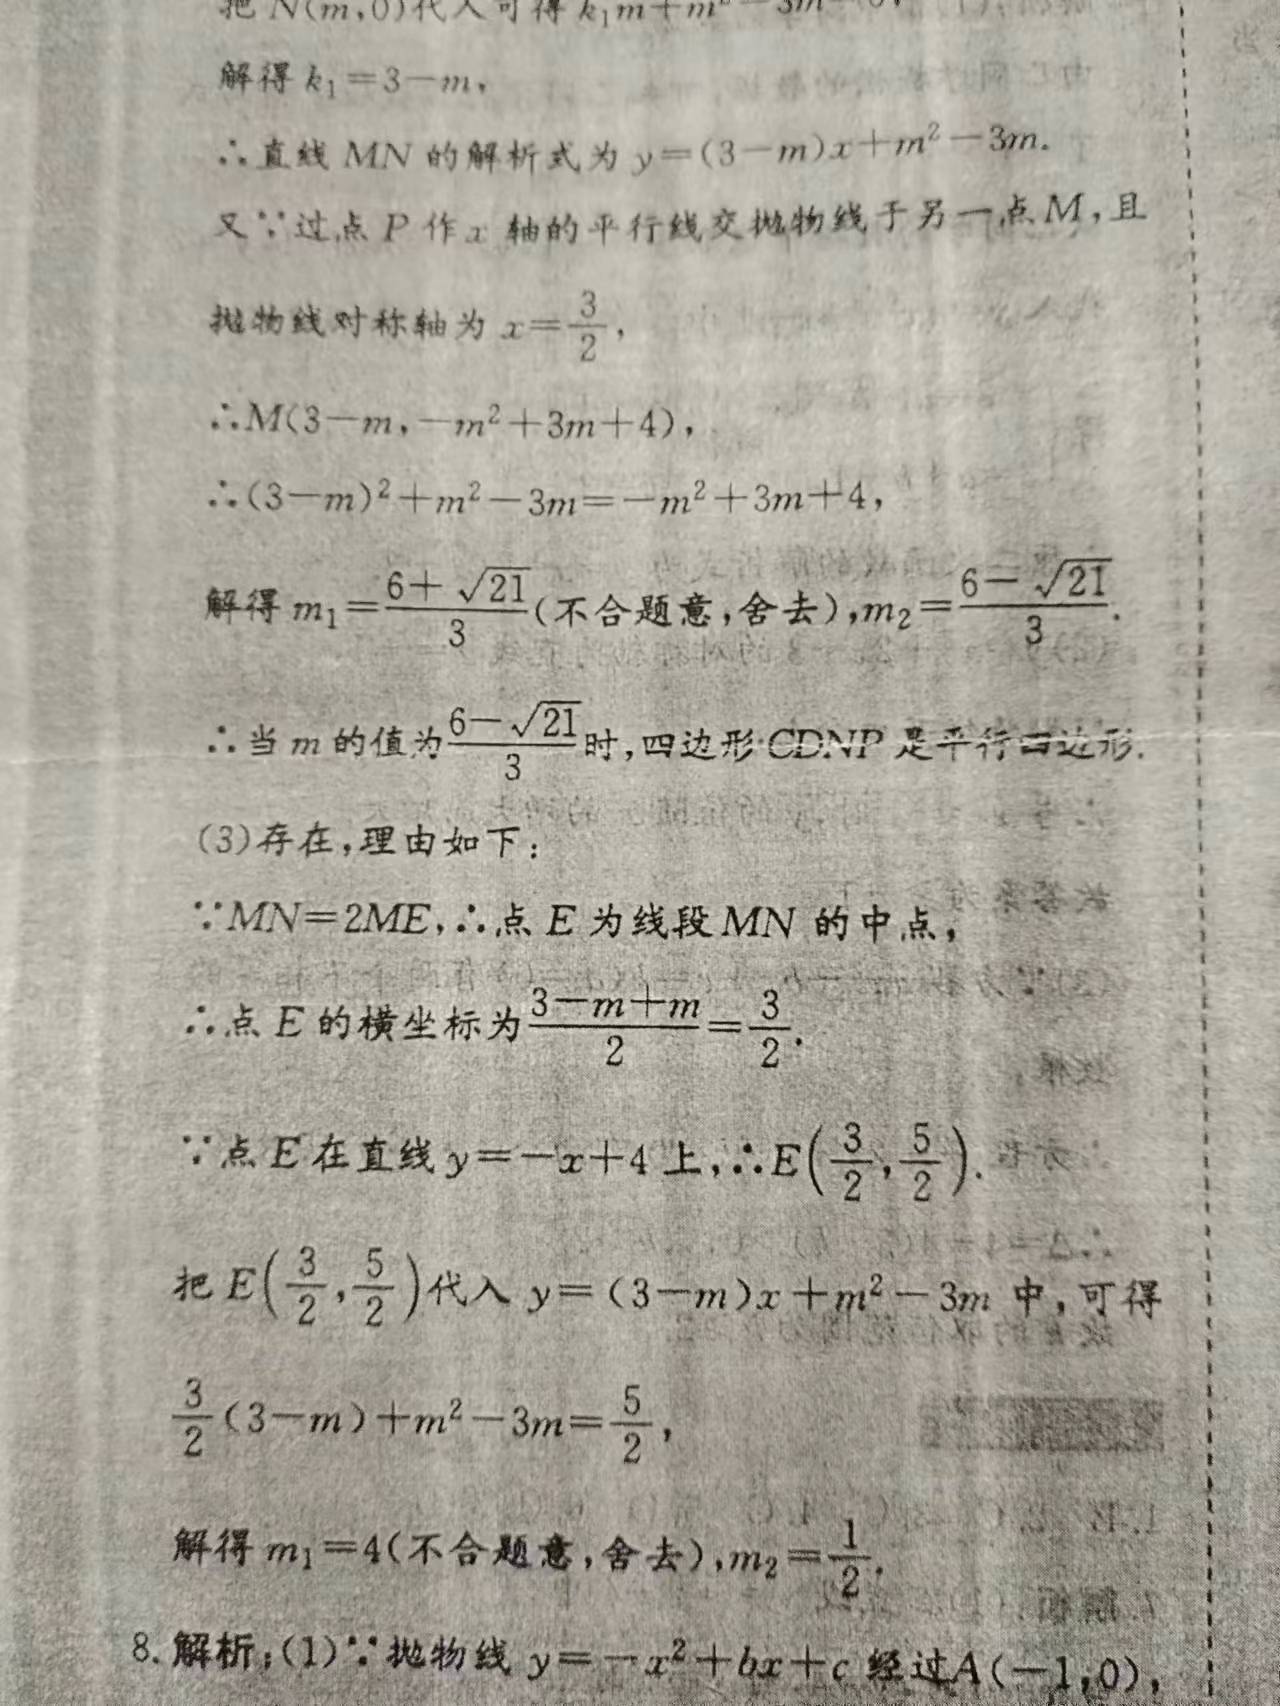 把 N(m,0)代入可得 k₁m+m²-3m=0,
解得 k₁=3-m,
∴直线 MN 的解析式为 y=(3-m)x+m²-3m.
又∵过点 P 作 x 轴的平行线交抛物线于另一点 M,且
抛物线对称轴为 x=3/2,
∴M(3-m,-m²+3m+4),
∴(3-m)²+m²-3m=-m²+3m+4,
解得 m₁=(6+√21)/3(不合题意,舍去),m₂=(6-√21)/3.
∴当 m 的值为(6-√21)/3时,四边形 CDNP 是平行四边形.
(3)存在,理由如下:
∵MN=2ME,∴点 E 为线段 MN 的中点,
∴点 E 的横坐标为(3-m+m)/2=3/2.
∵点 E 在直线 y=-x+4 上,∴E(3/2,5/2).
把 E(3/2,5/2)代入 y=(3-m)x+m²-3m 中,可得
3/2(3-m)+m²-3m=5/2,
解得 m₁=4(不合题意,舍去),m₂=1/2.
8. 解析:(1)∵抛物线 y=-x²+bx+c 经过A(-1,0),